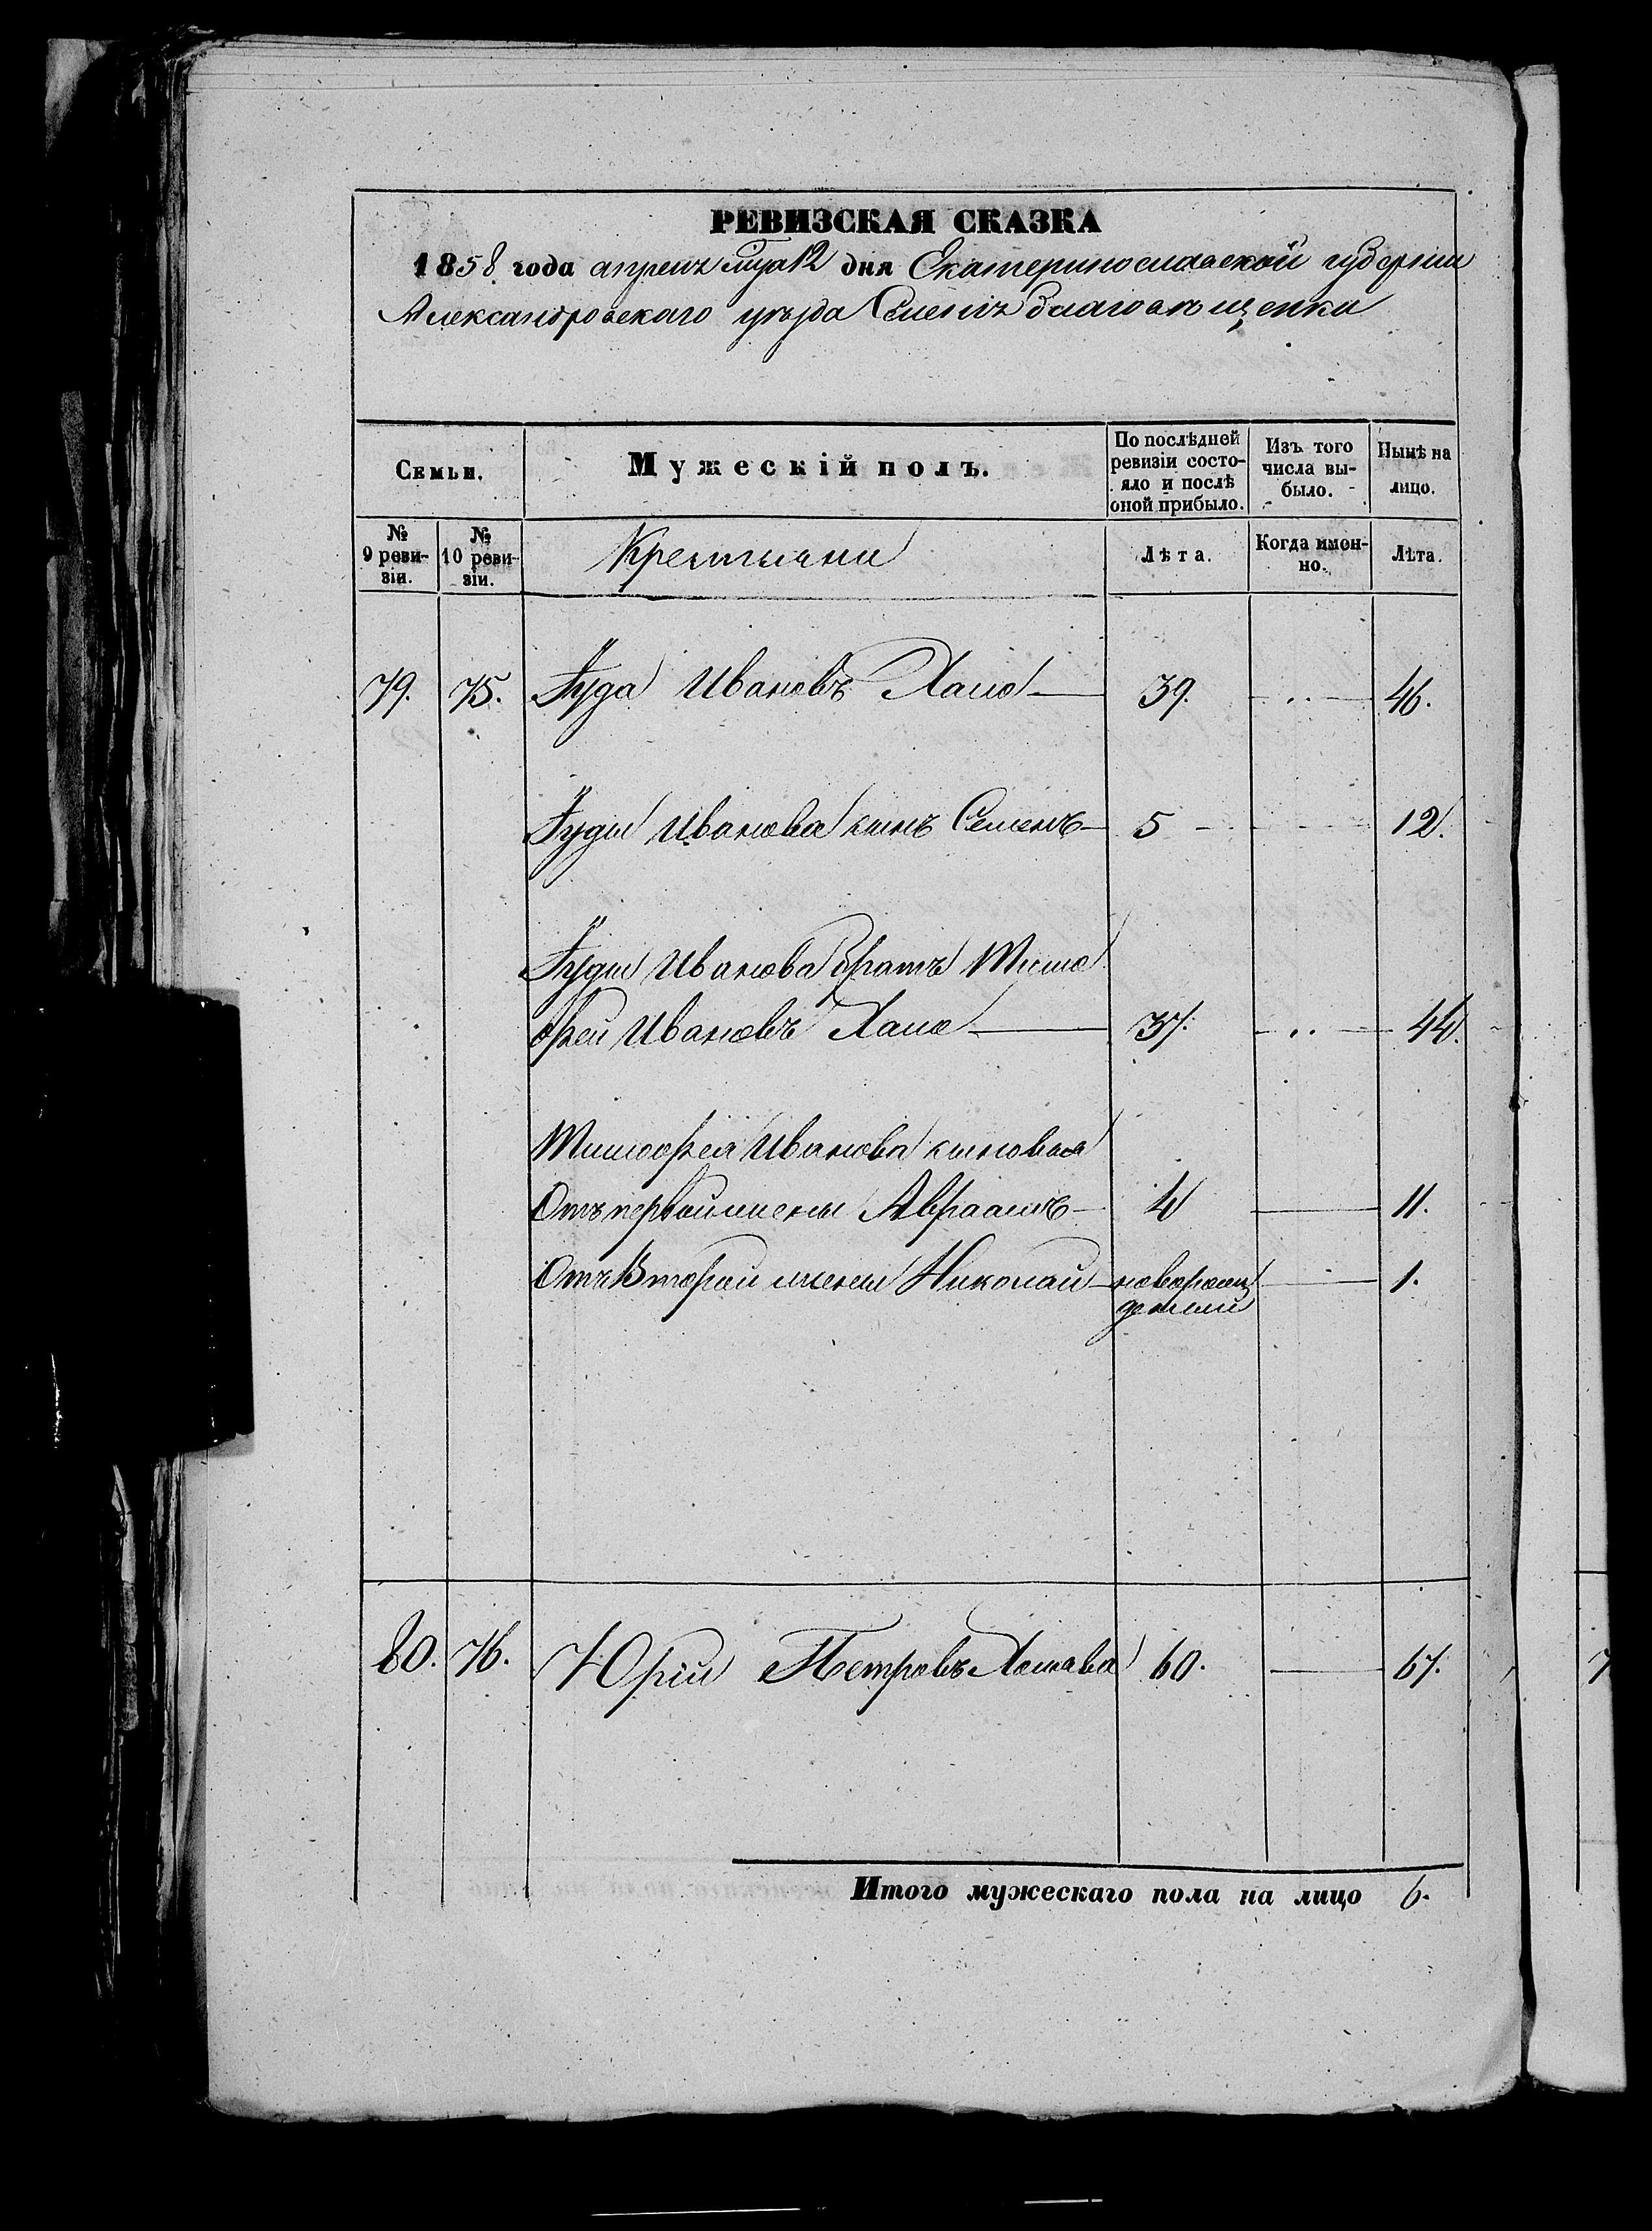 РЕВИЗСКАЯ СКАЗКА
1858 года апреля мца 12 дня Екатеринославской губерніи
Александровскаго уѣзда Благовѣщенки
Семьи.
Мужескій полъ.
По послѣдней ревизіи состояло и послѣ оной прибыло.
Изъ того числа выбыло.
Нынѣ на лицо.
№ 9 ревизіи.
№ 10 ревизіи.
Крестьяни
Лѣта.
Когда именно.
Лѣта.
79. 75. Іуда Ивановъ Хапо 39. 46.
Іуды Иванова сынъ Семенъ 5 12.
Іуды Иванова братъ Тимо
фей Ивановъ Хапо 37. 44.
Тимофея Иванова сыновья
Отъ первой жены Авраамъ 4 11.
Отъ Второй жены Николай новорожденый 1.
80. 76. Юрій Петровъ 60. 67.
Итого мужескаго пола на лицо 6.